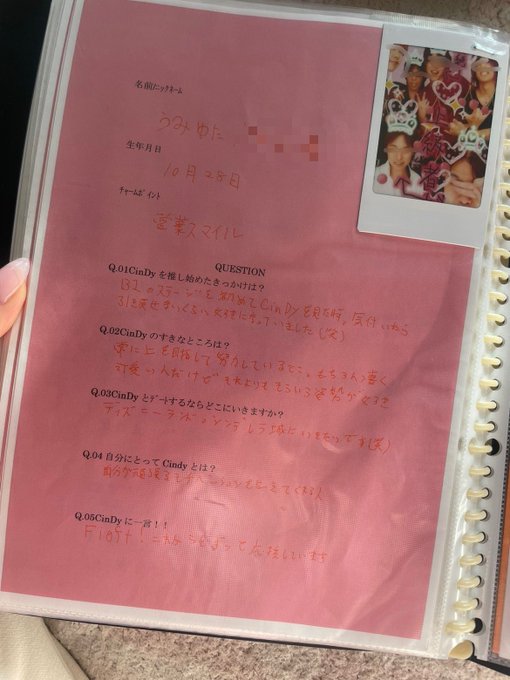 名前/ニックネーム
うみゆた
生年月日
10月28日
チャームポイント
営業スマイル
QUESTION
Q.01CinDyを推し始めたきっかけは？
のステージで初めてCinDyを見た時、気付いたら
になっていました(笑)
Q.02CinDyのすきなところは？
常に上を目指して努力しているとこ。もちろん凄く
可愛い人だけどそれよりもそういう姿勢が好き
Q.03CinDyとデートするならどこにいきますか？
ディズニーランドのシンデレラ城にいきたいです(笑)
Q.04自分にとってCindyとは？
自分が頑張るモチベーションを
Q.05CinDyに一言！！
Fight!これからも 応援しています